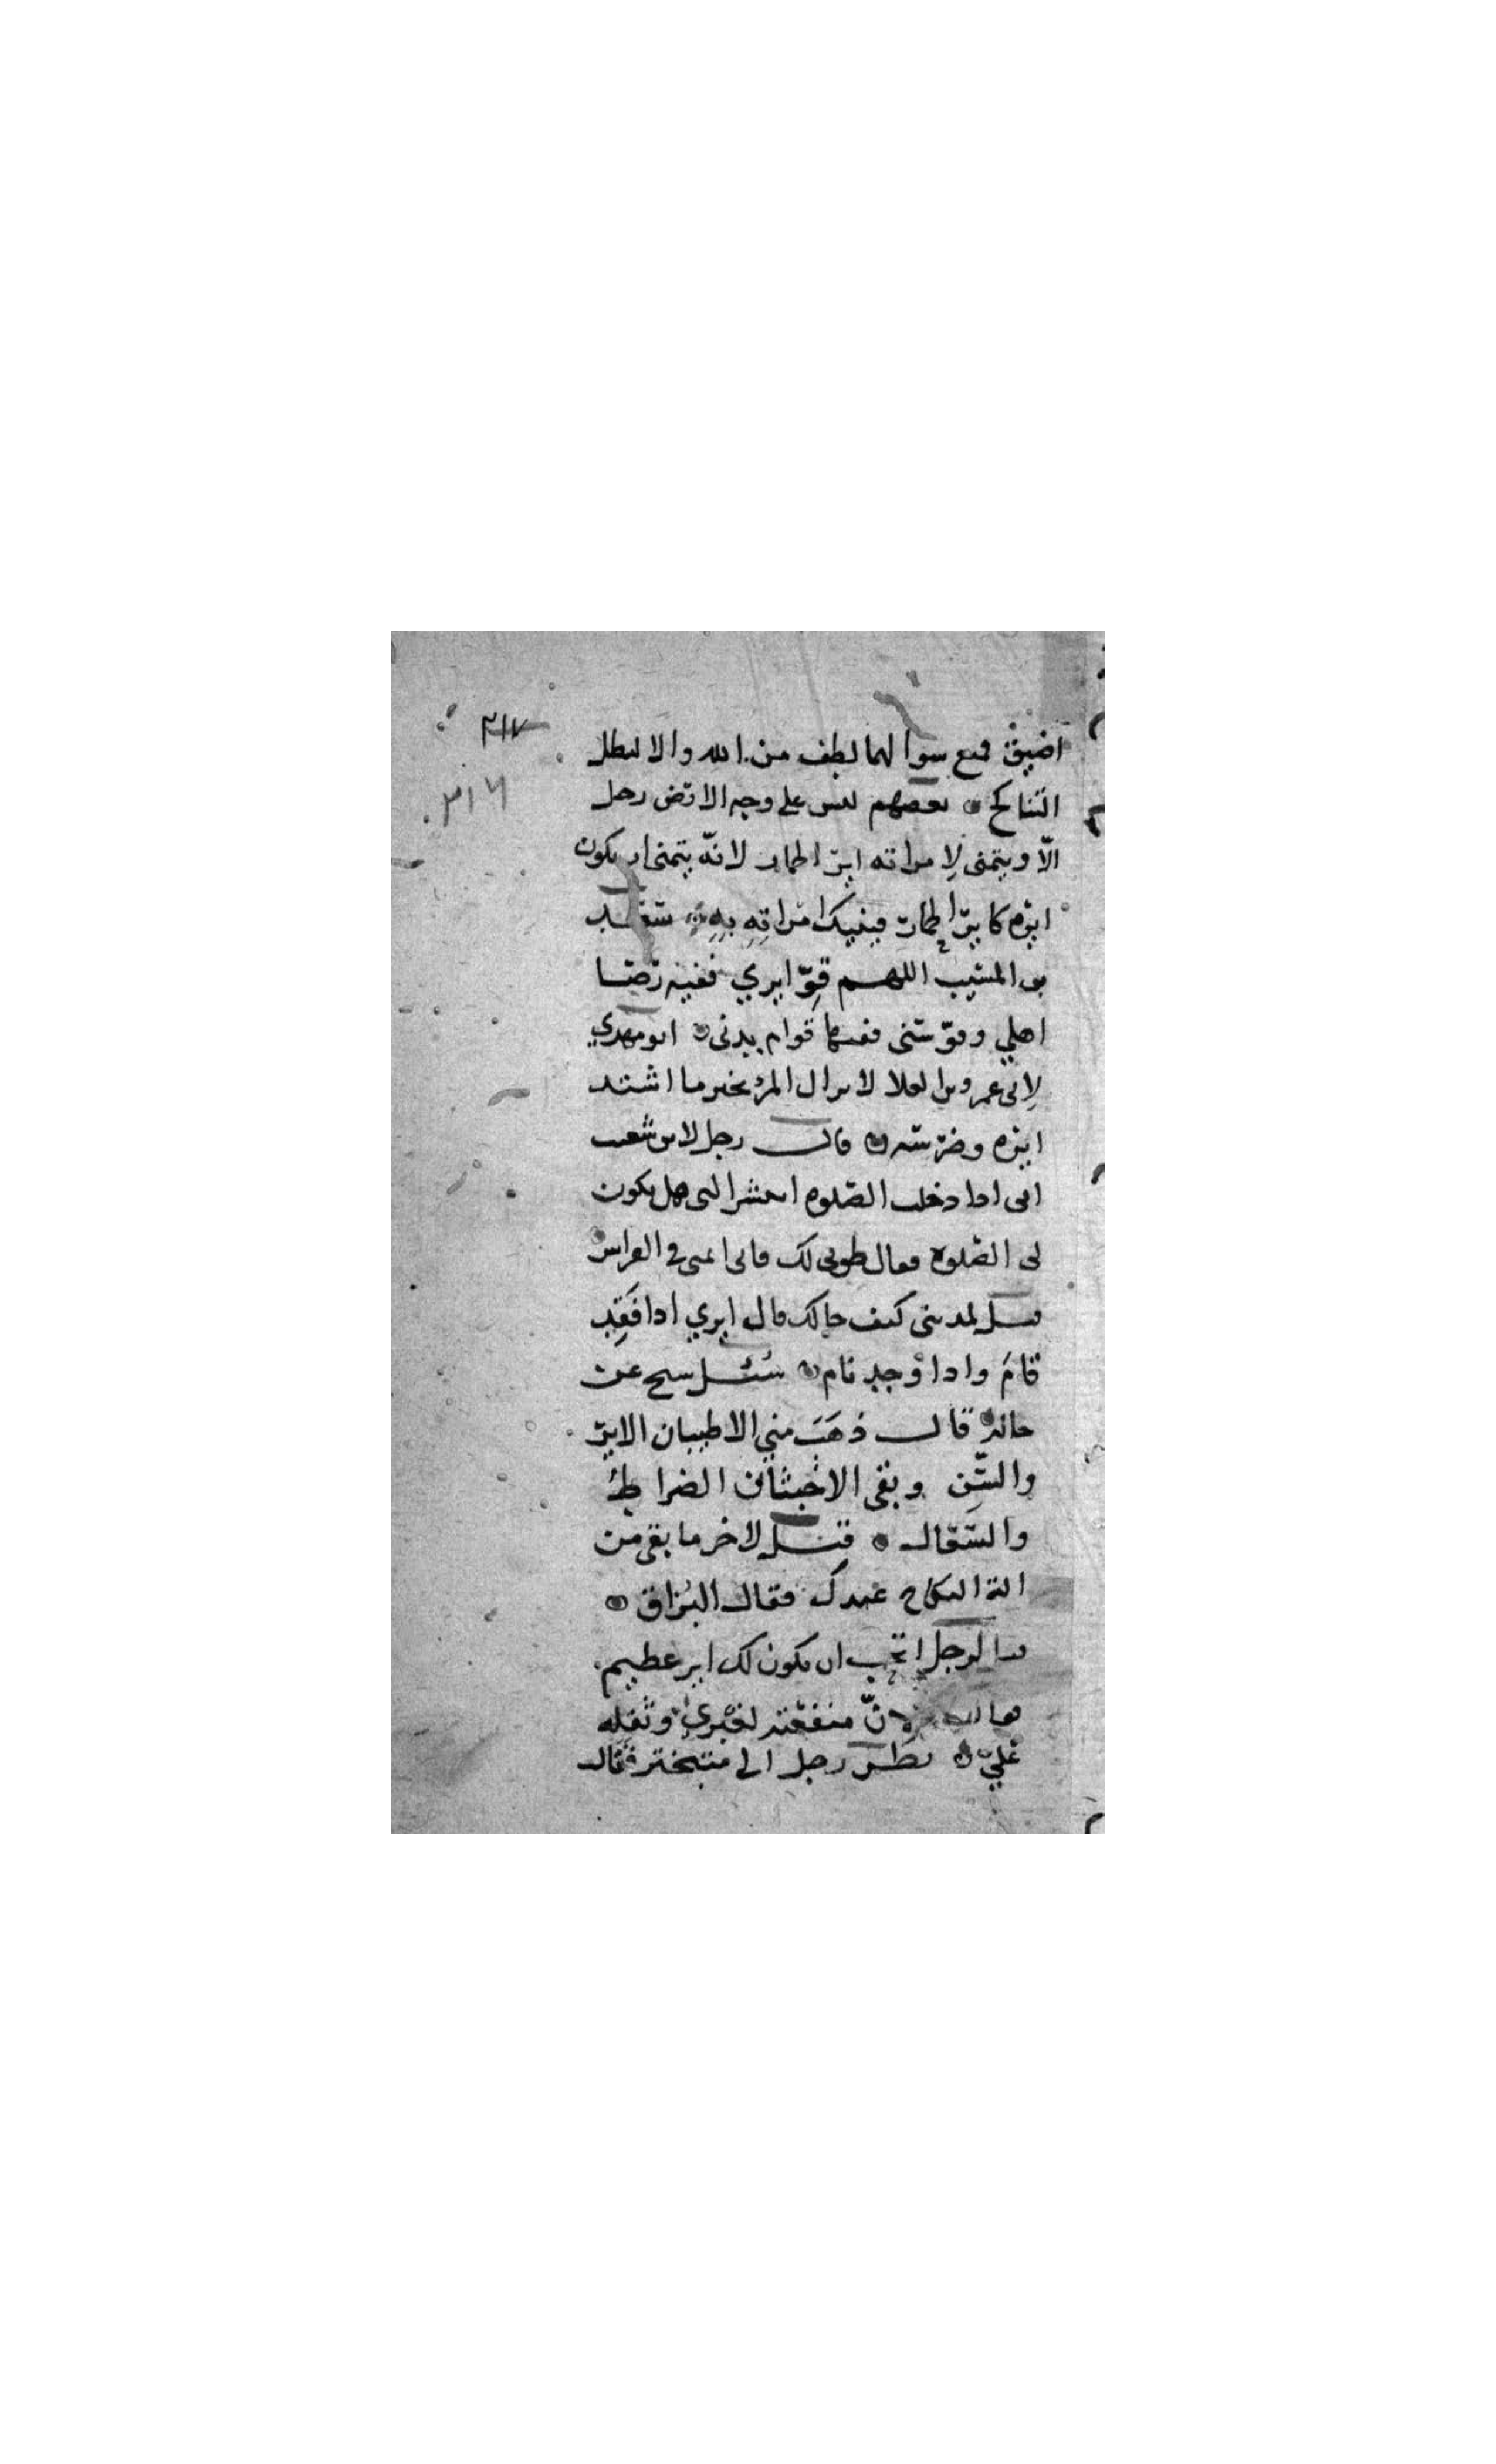 ٣١٧
٣١٦
اضيق فمع سوالهما لطف من الله والا لبطل
التناكح بعضهم ليس على وجه الارض رجل
الّا ويتمنى لِامراته ايرّ الحمار لانّه يتمنى ان يكون
ايره كايرّ الحمار فينيك امراتِهِ بِهِ سعيد
بن المسيب اللهم قوِّ ايري ففيه رضا
اهلي وقوّ سنى ففيها قوام بدنى ابو مهدي
لِابى عمرو بن العلا لا يزال المرء بخير ما اشتد
ايره وضرسه قال رجل لابن شعيب
انى اذا دخلت الصلوه انتشر اابى هل يكون
لى الصلوه فقال طوبى لك فانى اتمنى فى الفراش
قيل لمدينى كيف حالك قال ايري اذا فَقِد
قامَ واذا وجد نام سُئل شيخ عن
حاله قال ذهَبَ مني الاطيبان الاير
والسِّن وبقى الاخبثان الضراطُ
والسّعال قيل لاخر ما بقى من
الة النكاح عندك فقال البُزاق
قيل لرجل اتحب ان يكون لك اير عظيم
فقال لانّ منفعته لغيري وثقله
عليّ نظر رجل الى متبختر فقال